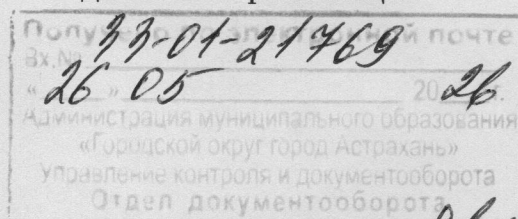 Получено по электронной почте
Вх.№ 33-01-21769
« 26 » 05 20 26 г.
Администрация муниципального образования
«Городской округ город Астрахань»
Управление контроля и документооборота
Отдел документооборота